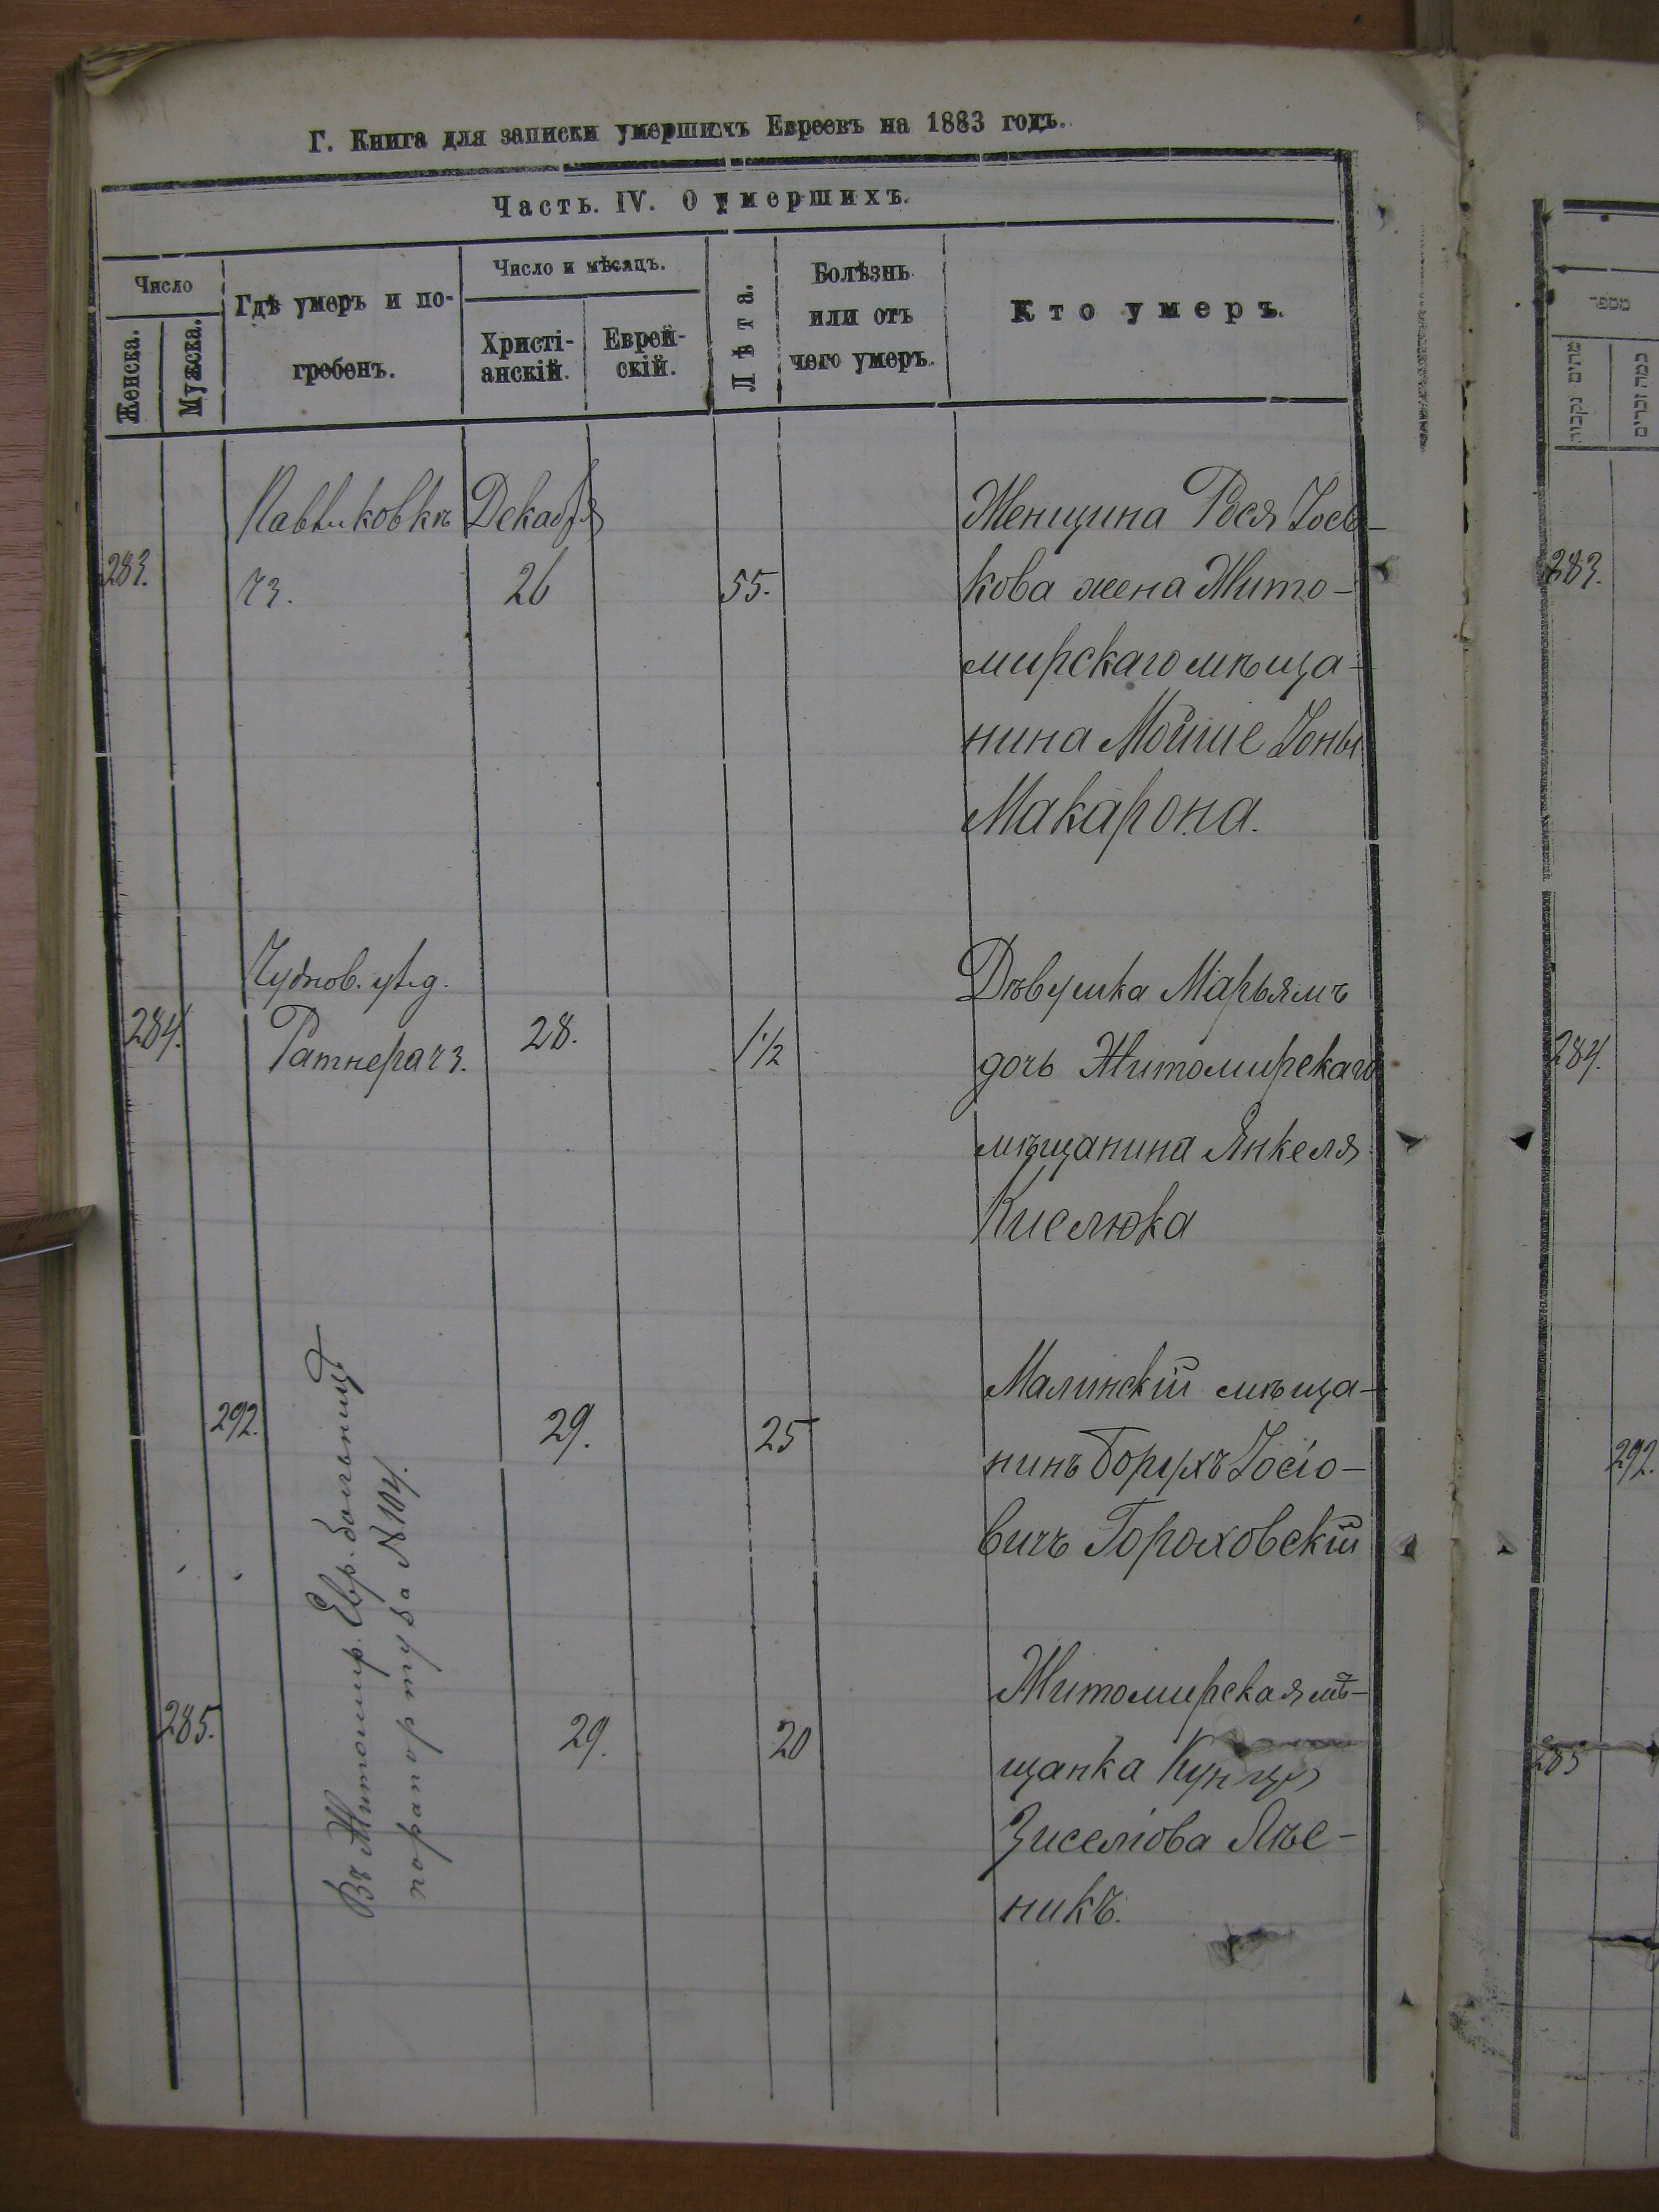 Г. Книга для записки умершихъ Евреевъ на 1883 годъ.
Часть. IV. О умершихъ.
Число
Женска.
Мужска.
Гдѣ умеръ и по-
гребенъ.
Число и мѣсяцъ.
Христі-
анскій.
Еврей-
скій.
Лѣта.
Болѣзнь
или отъ
чего умеръ.
Кто умеръ.
283.
Павликовкѣ
ч3.
Декабря
26
55.
Женщина Рося Іось-
кова жена Жито-
мирскаго мѣща-
нина Мойше Іоны
Макарона.
284.
Чуднов.
Ратнера ч3.
28.
1 1/2
Дѣвушка Марьямъ
дочь Житомирскаго
мѣщанина Янкеля
Киселюка
292.
Въ Житомир. Евр. больницѣ
по рапорту за №104.
29.
25
Малинскій мѣща-
нинъ Борухъ Іосіо-
вичъ Гороховскій
285.
29.
20
Житомирская мѣ-
щанка Кунця
Зиселіова Лѣс-
никъ.
מספר
מתים נקבות
כמה זכרים
283.
284.
292.
285